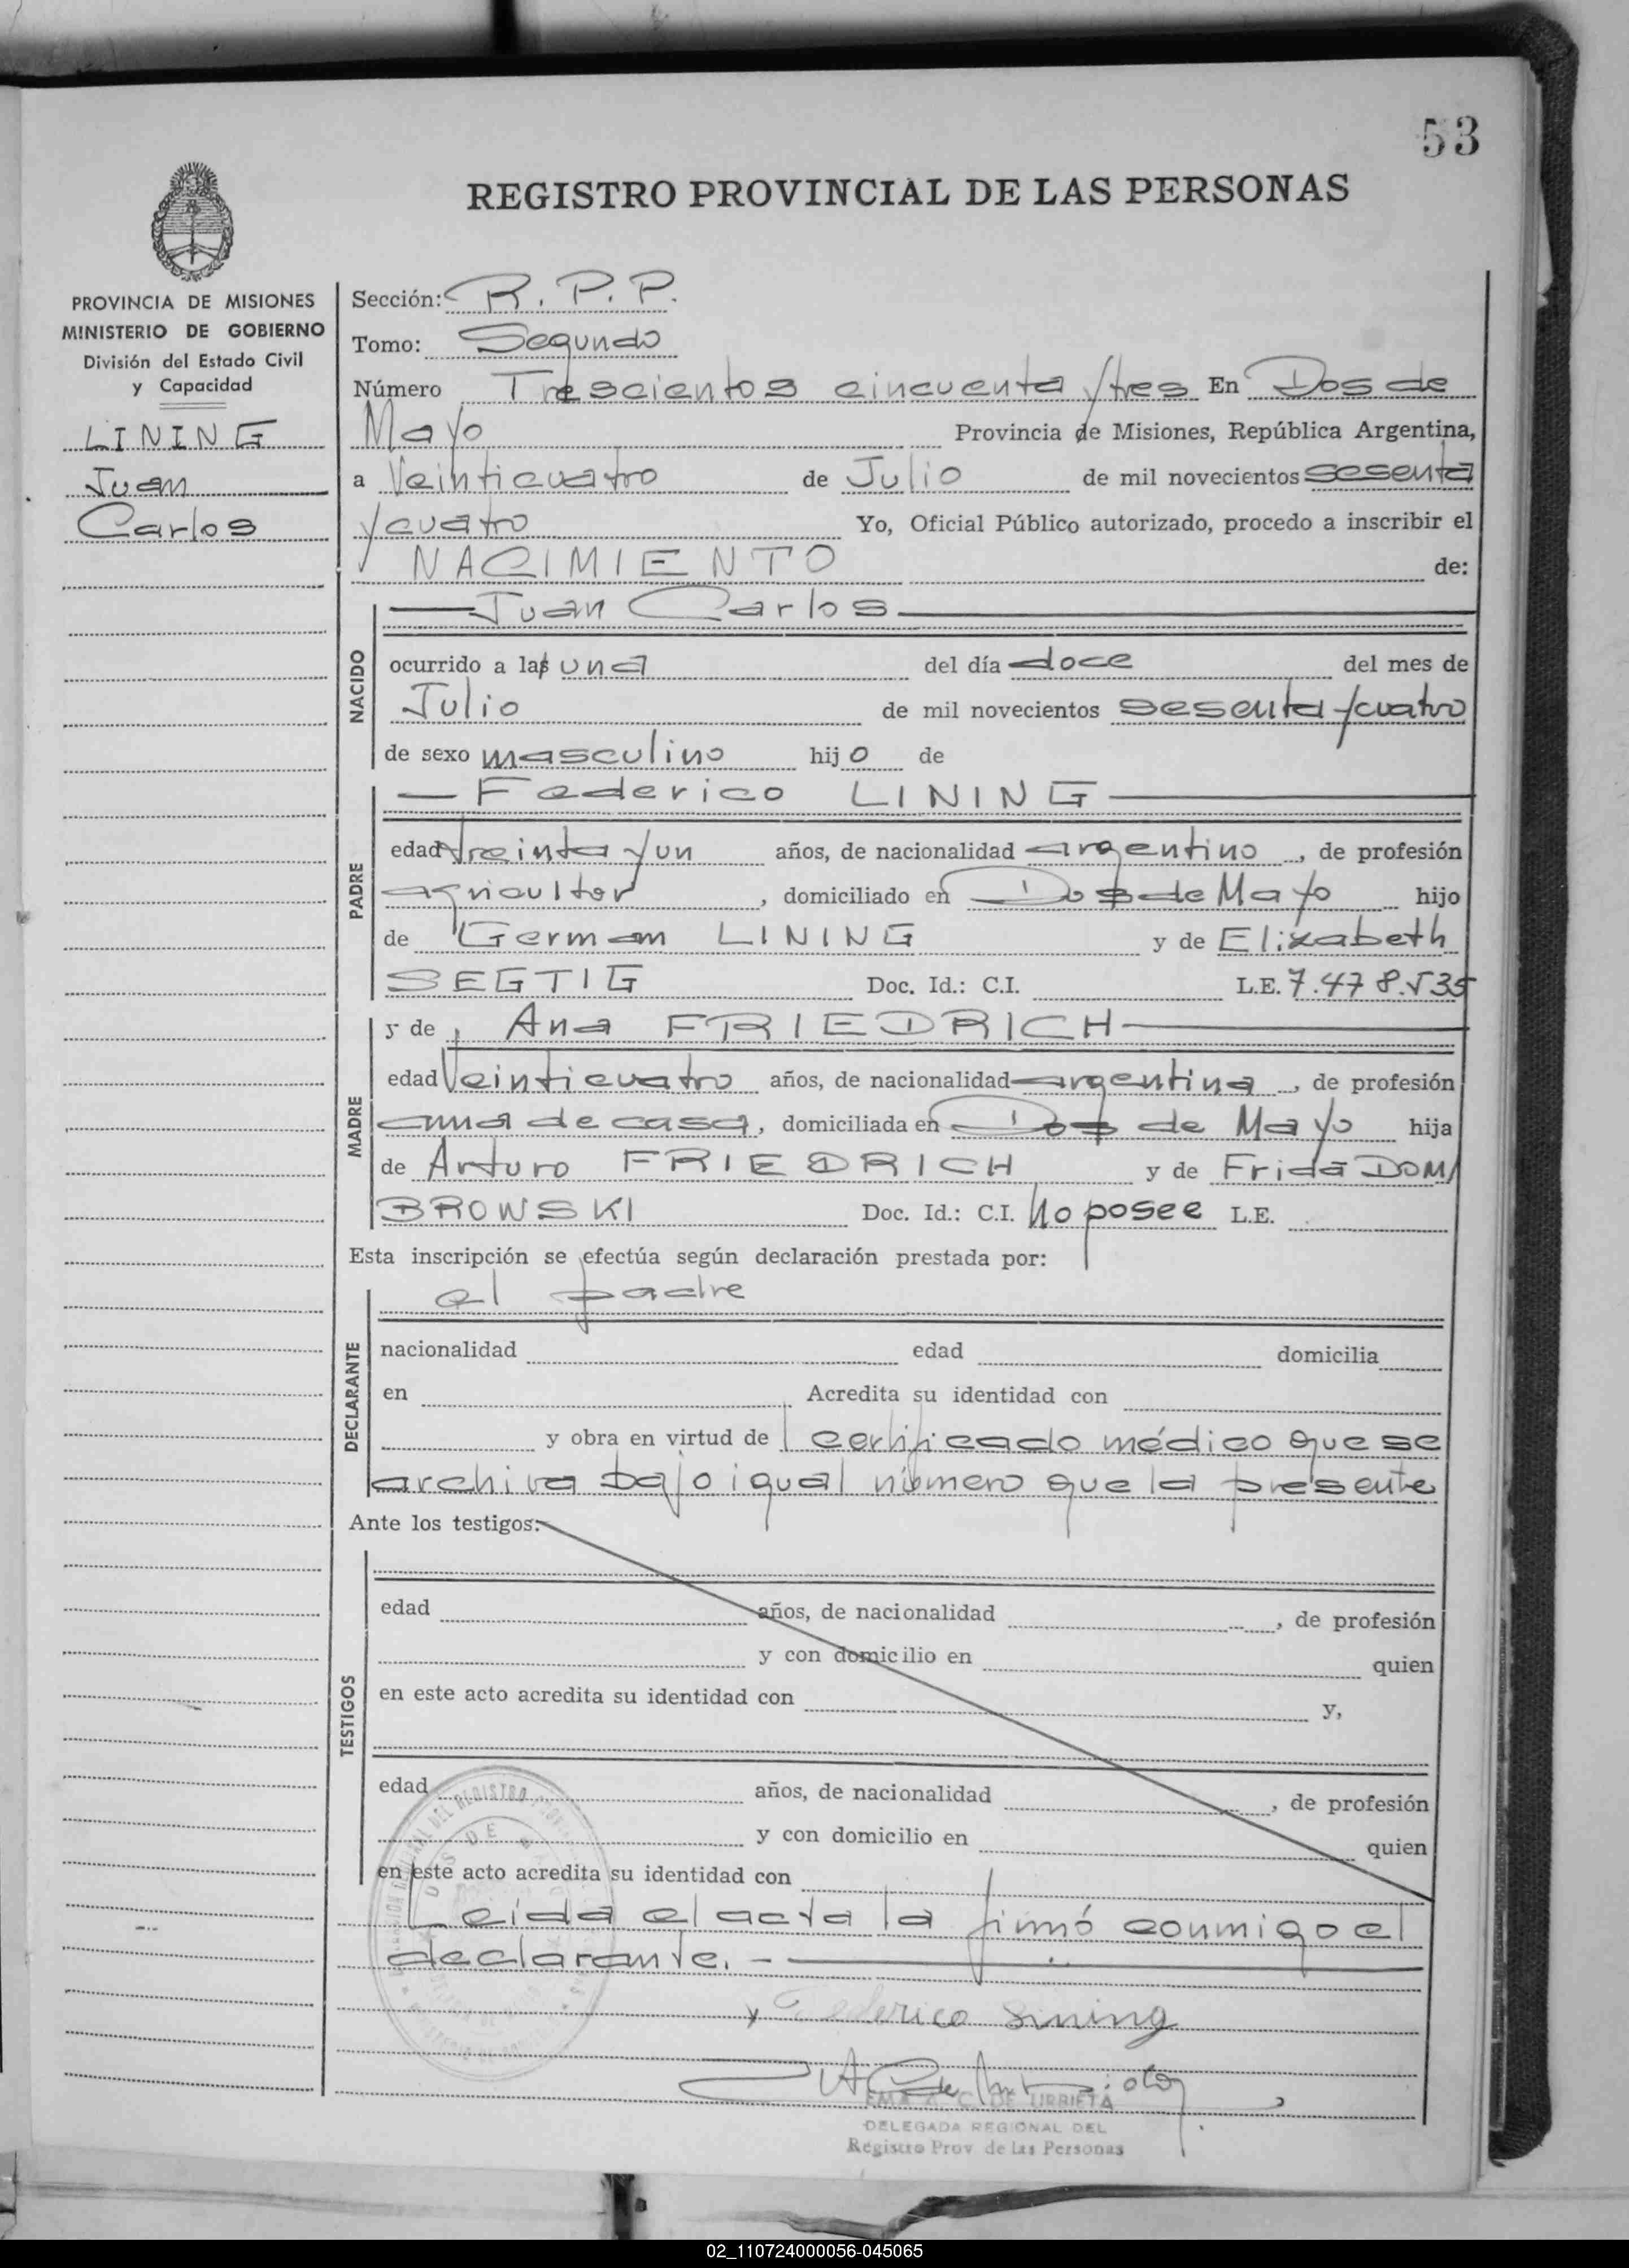 53
REGISTRO PROVINCIAL DE LAS PERSONAS
PROVINCIA DE MISIONES
MINISTERIO DE GOBIERNO
División del Estado Civil
y Capacidad
LINING
Juan
Carlos
Sección: R. P. P.
Tomo: Segundo
Número Trescientos cincuenta y tres En Dos de
Mayo Provincia de Misiones, República Argentina,
a Veinticuatro de Julio de mil novecientos sesenta
y cuatro Yo, Oficial Público autorizado, procedo a inscribir el
NACIMIENTO de:
NACIDO
Juan Carlos
ocurrido a las una del día doce del mes de
Julio de mil novecientos sesenta y cuatro
de sexo masculino hijo de
PADRE
Federico LINING
edad treinta y un años, de nacionalidad argentino, de profesión
agricultor, domiciliado en Dos de Mayo hijo
de German LINING y de Elizabeth
SEGTIG Doc. Id.: C.I. L.E. 7.478.535
MADRE
y de Ana FRIEDRICH
edad Veinticuatro años, de nacionalidad argentina, de profesión
ama de casa, domiciliada en Dos de Mayo hija
de Arturo FRIEDRICH y de Frida DOM/
BROWSKI Doc. Id.: C.I. No posee L.E.
Esta inscripción se efectúa según declaración prestada por:
DECLARANTE
el padre
nacionalidad edad domicilia
en Acredita su identidad con
y obra en virtud de certificado médico que se
archiva bajo igual número que la presente
Ante los testigos:
TESTIGOS
edad años, de nacionalidad , de profesión
y con domicilio en quien
en este acto acredita su identidad con y,
edad años, de nacionalidad , de profesión
y con domicilio en quien
en este acto acredita su identidad con
Leida el acta la firmó conmigo el
declarante. -
Federico Lining
C. DE URRIETA
DELEGADA REGIONAL DEL
Registro Prov de las Personas
02_110724000056-045065